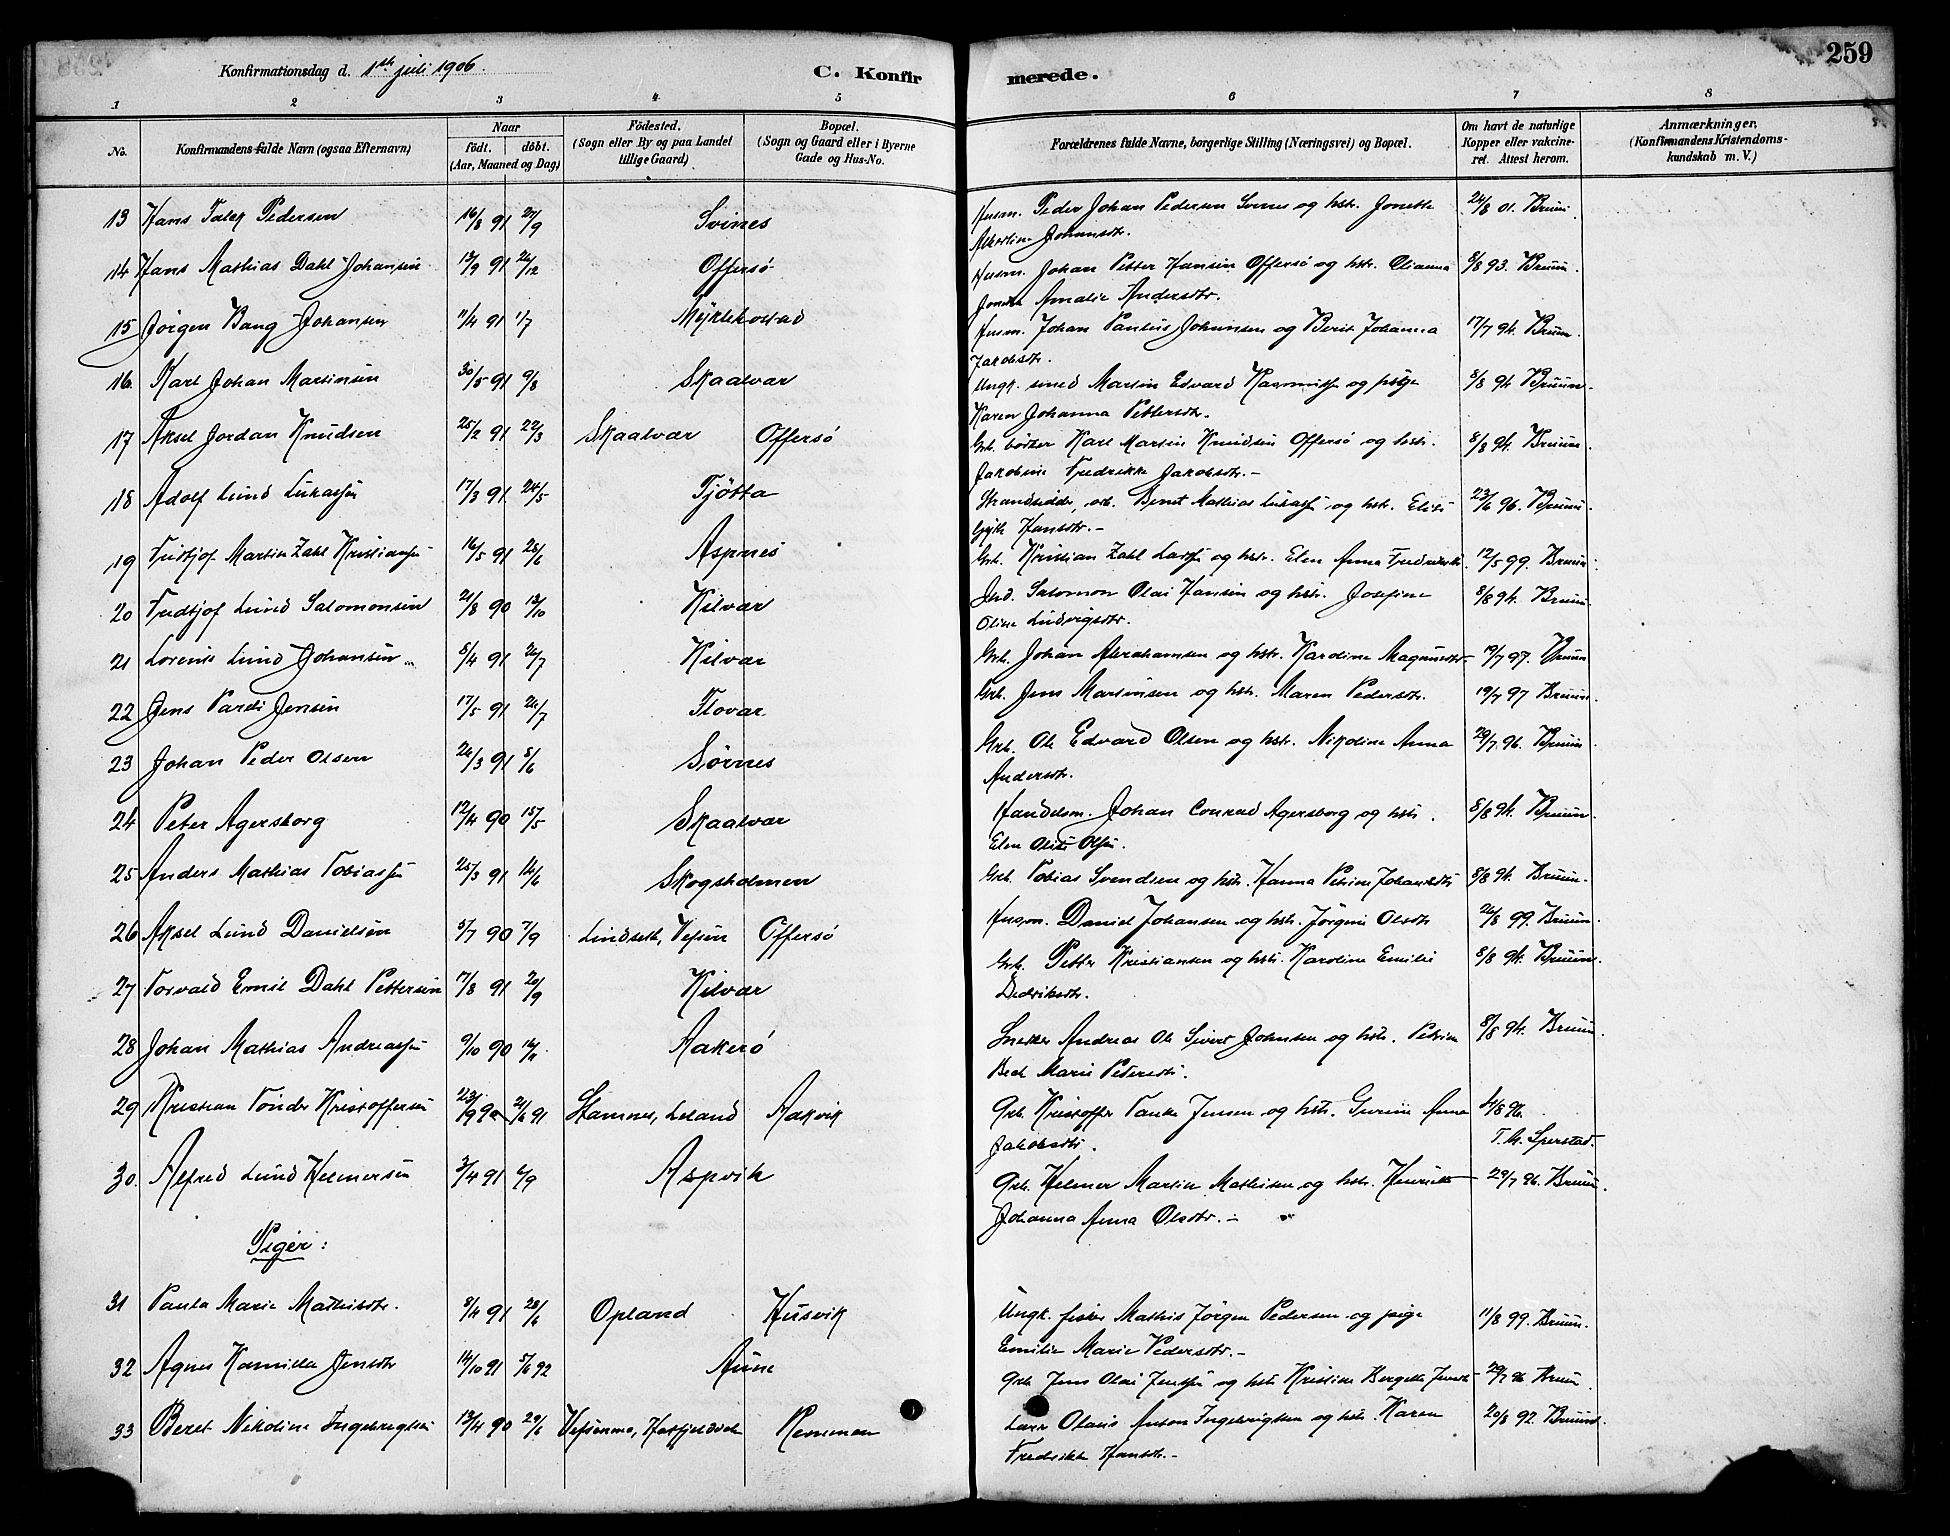 259
Konfirmationsdag d. 1st juli 1906.
C. Konfirmerede.
1 2 3 4 5 6 7 8
No.
Konfirmandens fulde Navn (ogsaa Efternavn)
Naar
födt. döbt.
(Aar, Maaned og Dag)
Födested.
(Sogn eller By og paa Landet
tillige Gaard)
Bopæl.
(Sogn og Gaard eller i Byerne
Gade og Hus-No.
Forældrenes fulde Navne, borgerlige Stilling (Næringsvei) og Bopæl.
Om havt de naturlige
Kopper eller vakcine-
ret. Attest herom.
Anmærkninger,
(Konfirmandens Kristendoms-
kundskab m. V.)
13 Hans Falck Pedersen 16/8 91 27/9 Svines Husm. Peder Johan Pedersen Svines og hstr. Jonette 24/8 01. Bruun.
Albertine Johansdtr.
14 Hans Mathias Dahl Johansen 13/9 91 26/12 Offersø Husm. Johan Petter Hansen Offersø og hstr. Olianna 8/8 93. Bruun.
Amalie Andersdtr.
15 Jörgen Bang Johansen 11/4 91 1/7 Myklebostad Husm. Johan Paulus Johansen og Berit Johanna 17/7 94. Bruun.
Jakobsdtr.
16 Karl Johan Martinsen 30/5 91 9/8 Skaalvær Ungk. smed Martin Edvard og pige 8/8 94 Bruun.
Karen Johanna Pettersdtr.
17 Aksel Jordan Knudsen 25/2 91 22/3 Skaalvær Offersø Grb. bøtker Karl Martin Knudsen Offersø og hstr. 8/8 94. Bruun.
Jakobine Fredrikke Jakobsdtr.-
18 Adolf Lund Lukassen 17/3 91 24/5 Tjøtta Strandsidder, Bent Mathias Lukassen og hstr. 23/6 96. Bruun.
Hansdtr.-
19 Fridtjof Martin Zahl Kristiansen 16/5 91 28/6 Aspnes Grb. Kristian Zahl og hstr. Elen Anna Fredriksdtr. 12/5 99. Bruun.
20 Fridtjof Lund Salomonsen 21/8 90 13/10 Kilvær Salomon Olai Hansen og hstr. Josefine 8/8 94. Bruun.
Oline Ludvigsdtr.
21 Lorents Lund Johansen 8/4 91 26/7 Kilvær Grb. Johan Abrahamsen og hstr. Karoline Magnusdtr. 19/7 97. Bruun
22 Jens Jensen 17/5 91 26/7 Flovær Grb. Jens Martinsen og hstr. Maren Pedersdtr. 19/7 97 Bruun.
23 Johan Peder Olsen 24/3 91 8/6 Sørnes Grb. Ole Edvard Olsen og hstr. Nikoline Anna 29/7 96. Bruun
Andersdtr.
24 Peter Agersborg 12/4 90 15/5 Skaalvær Handelsm. Johan Conrad Agersborg og hstr. 8/8 94. Bruun.
Elen Olsen.
25 Anders Mathias Tobiassen 25/3 91 14/6 Skogsholmen Grb. Tobias Svendsen og hstr. Hanna Petrine Johansdtr 8/8 94. Bruun.
26 Aksel Lund Danielsen 3/7 90 7/9 Lindseth, Vefsen Offersø Husm. Daniel Johansen og hstr. Jörgine Olsdtr 26/8 99. Bruun.
27 Torvald Emil Dahl Pettersen 7/8 91 20/9 Kilvær Grb. Petter Kristiansen og hstr. Karoline Emilie 8/8 94. Bruun.
Dedriksdtr.
28 Johan Mathias Andreassen 9/10 90 16/11 Aakerø Snekker Andreas Ole Sivert Johnsen og hstr. Petrine 8/8 94. Bruun.
Bech Marie Petersdtr.
29 Kristian Tønder Kristoffersen 23/9 90 21/6 91 Stamnes, Leland Aakvik Grb. Kristoffer Jensen og hstr. Gurine Anna 4/8 96.
Jakobsdtr. Sperstad.
30. Alfred Lund Helmersen 3/4 91 6/9 Aspvik Grb. Helmer Martin Mathisen og hstr. Henriette 29/7 96. Bruun.
Johanna Anna Olsdtr.-
Piger:
31 Paula Marie Mathisdtr. 8/4 91 28/6 Opland Husvik Ungk. fisker Mathis Jörgen Pedersen og pige 11/8 99. Bruun.
Emilie Marie Pedersdtr.-
32 Agnes Kamilla Jensdtr 14/10 91 5/6 92 Aune Grb. Jens Olai Jenssen og hstr. Kristine Bergette 29/7 96 Bruun.
33 Beret Nikoline Ingebrigtsen 13/4 90 29/6 Hatfjelddalen Remman Olaus Anton Ingebrigtsen og hstr. Karen 20/8 92. Bruun.
Fredrikke Hansdtr.-